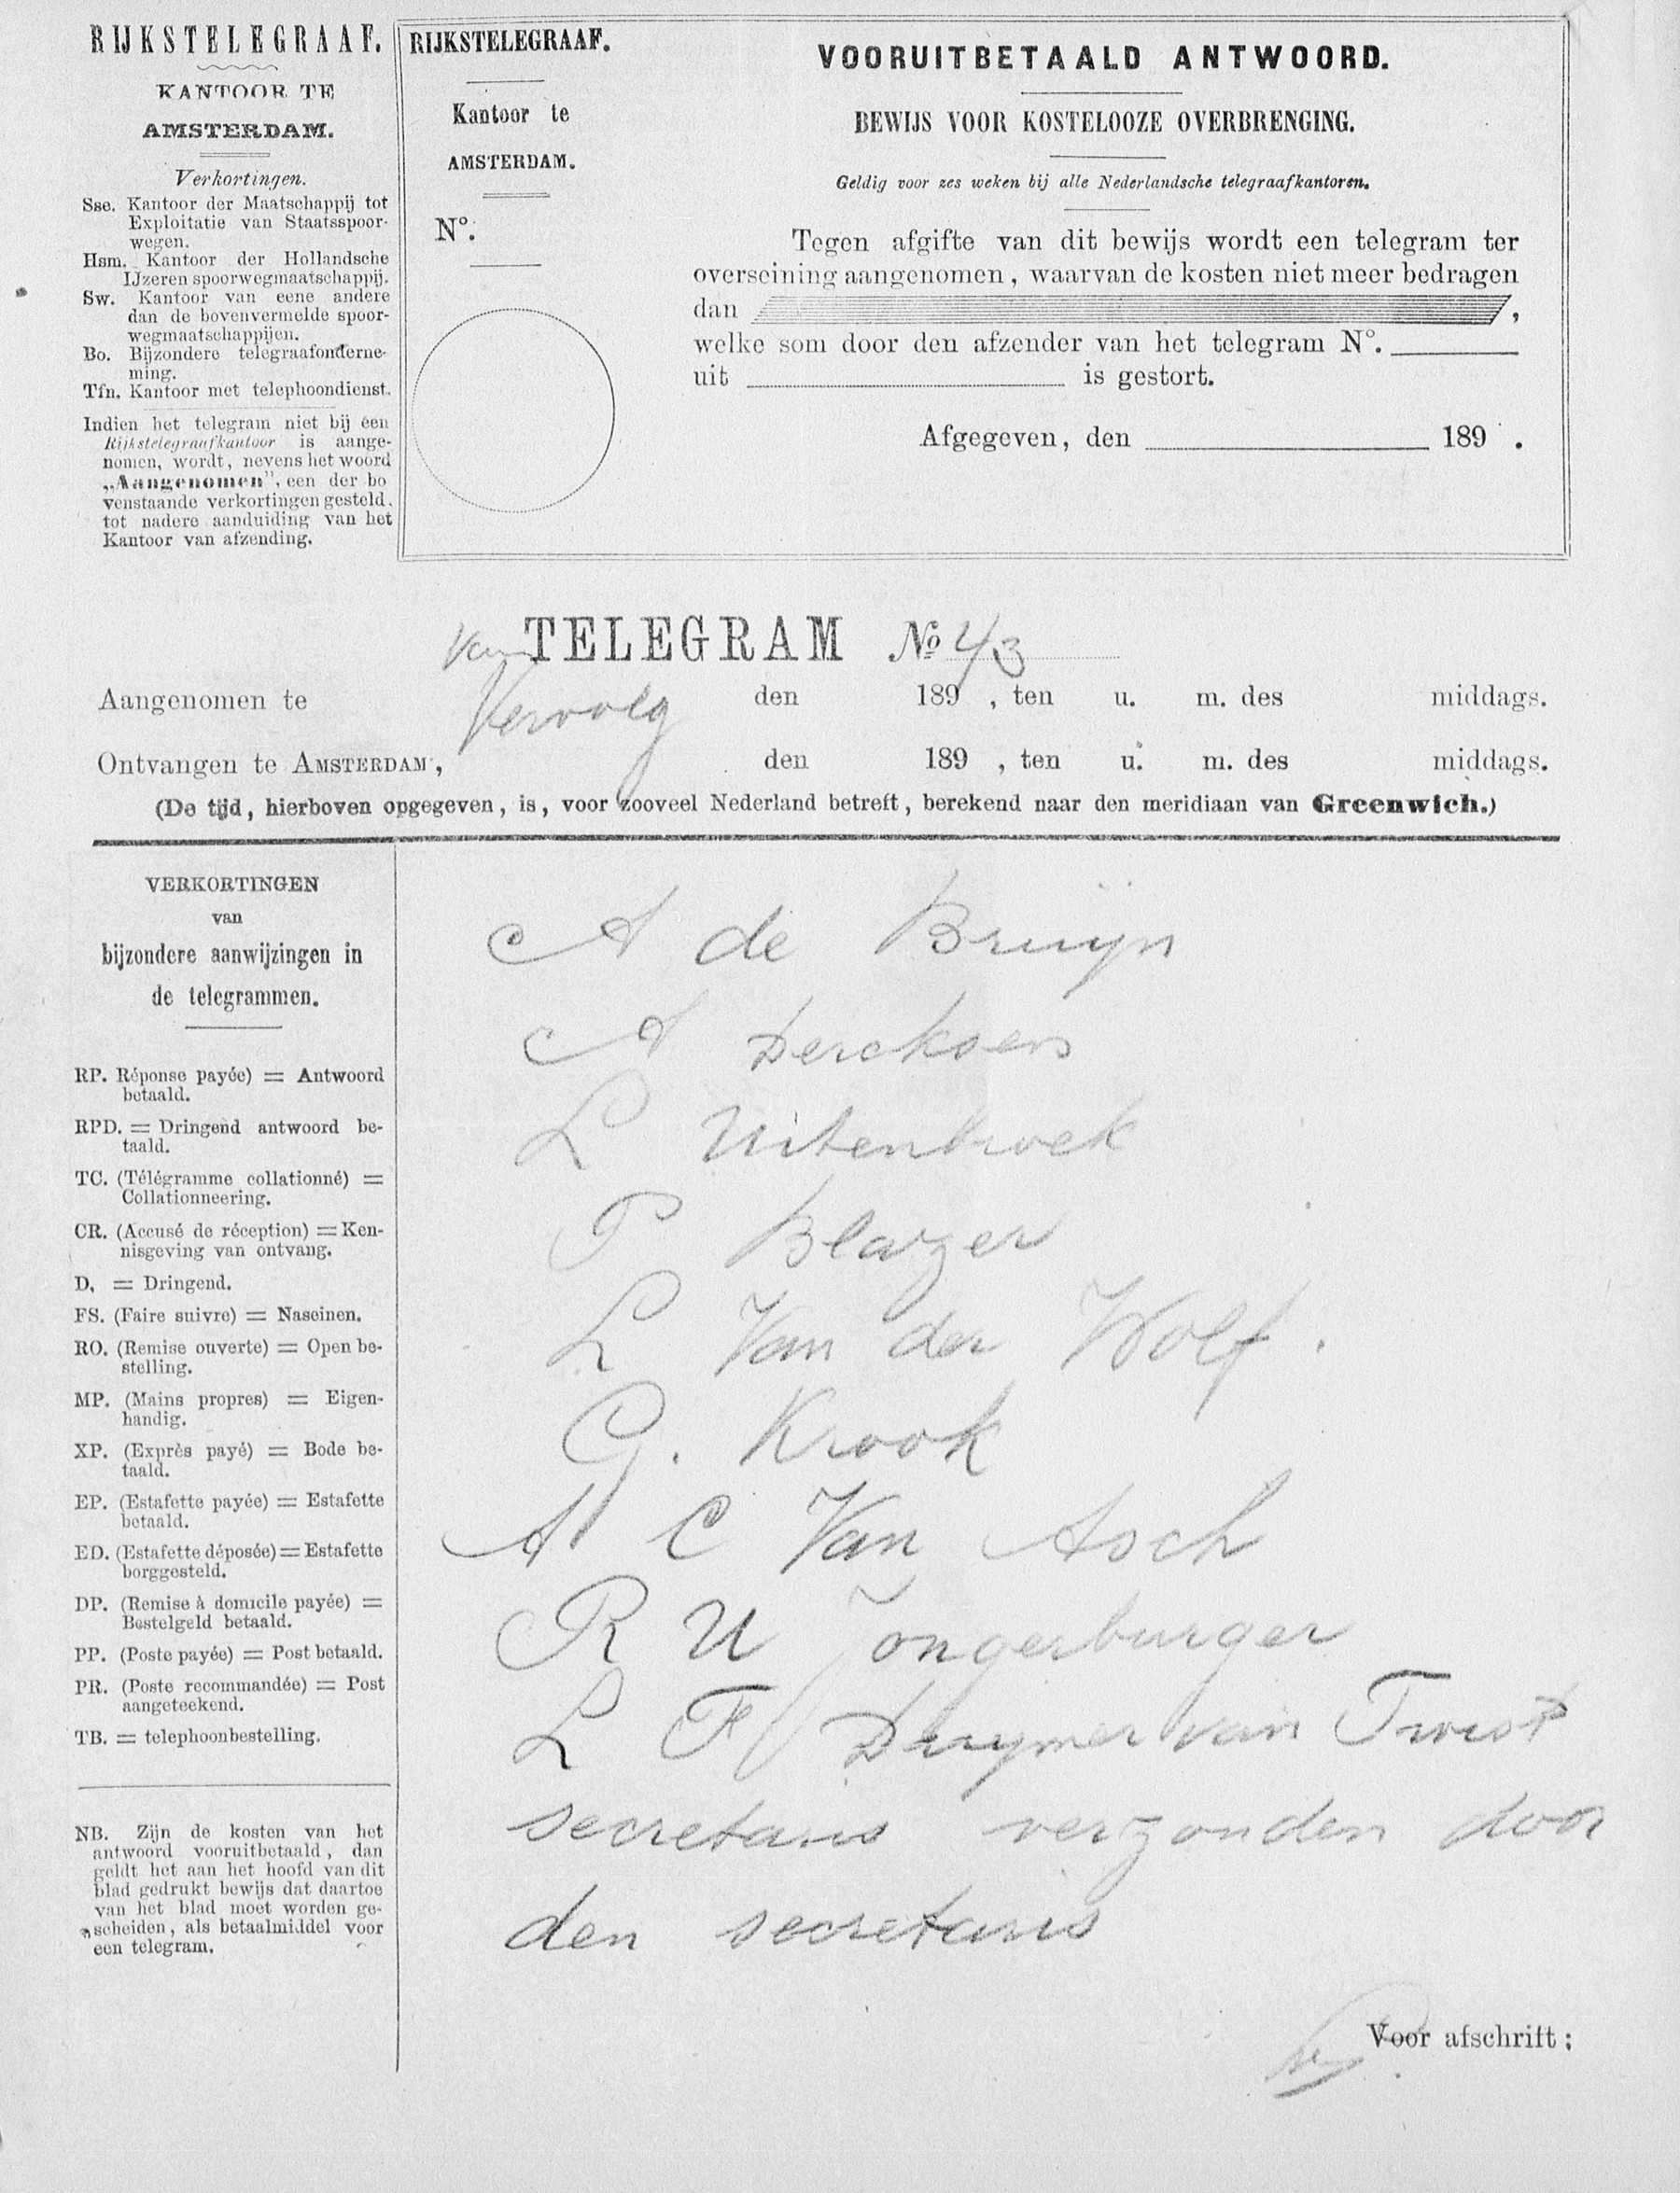 RIJKSTELEGRAAF.
KANTOOR TE
AMSTERDAM.
Verkortingen.
Sse. Kantoor der Maatschappij tot
Exploitatie van Staatsspoor-
wegen.
Hsm. Kantoor der Hollandsche
IJzeren spoorwegmaatschappij.
Sw. Kantoor van eene andere
dan de bovenvermelde spoor-
wegmaatschappijen.
Bo. Bijzondere telegraafonderne-
ming.
Tfn. Kantoor met telephoondienst.
Indien het telegram niet bij een
Rijkstelegraafkantoor is aange-
nomen, wordt, nevens het woord
„Aangenomen”, een der bo
venstaande verkortingen gesteld,
tot nadere aanduiding van het
Kantoor van afzending.
RIJKSTELEGRAAF.
Kantoor te
AMSTERDAM.
N°.
VOORUITBETAALD ANTWOORD.
BEWIJS VOOR KOSTELOOZE OVERBRENGING.
Geldig voor zes weken bij alle Nederlandsche telegraafkantoren.
Tegen afgifte van dit bewijs wordt een telegram ter
overseining aangenomen, waarvan de kosten niet meer bedragen
dan ,
welke som door den afzender van het telegram N°.
uit is gestort.
Afgegeven, den 189 .
Van TELEGRAM No 43
Vervolg
Aangenomen te den 189 , ten u. m. des middags.
Ontvangen te AMSTERDAM, den 189 , ten u. m. des middags.
(De tijd, hierboven opgegeven, is, voor zooveel Nederland betreft, berekend naar den meridiaan van Greenwich.)
VERKORTINGEN
van
bijzondere aanwijzingen in
de telegrammen.
RP. Réponse payée) = Antwoord
betaald.
RPD. = Dringend antwoord be-
taald.
TC. (Télégramme collationné) =
Collationneering.
CR. (Accusé de réception) = Ken-
nisgeving van ontvang.
D, = Dringend.
FS. (Faire suivre) = Naseinen.
RO. (Remise ouverte) = Open be-
stelling.
MP. (Mains propres) = Eigen-
handig.
XP. (Exprès payé) = Bode be-
taald.
EP. (Estafette payée) = Estafette
betaald.
ED. (Estafette déposée) = Estafette
borggesteld.
DP. (Remise à domicile payée) =
Bestelgeld betaald.
PP. (Poste payée) = Post betaald.
PR. (Poste recommandée) = Post
aangeteekend.
TB. = telephoonbestelling.
NB. Zijn de kosten van het
antwoord vooruitbetaald, dan
geldt het aan het hoofd van dit
blad gedrukt bewijs dat daartoe
van het blad moet worden ge-
scheiden, als betaalmiddel voor
een telegram.
A de Bruijn
A Dercksen
L Uitenbroek
P Blazer
L Van der Wolf.
G. Krook
A C Van Asch
R U Jongerburger
L F Duymer van Twist
secretaris verzonden door
den secretaris
Voor afschrift: